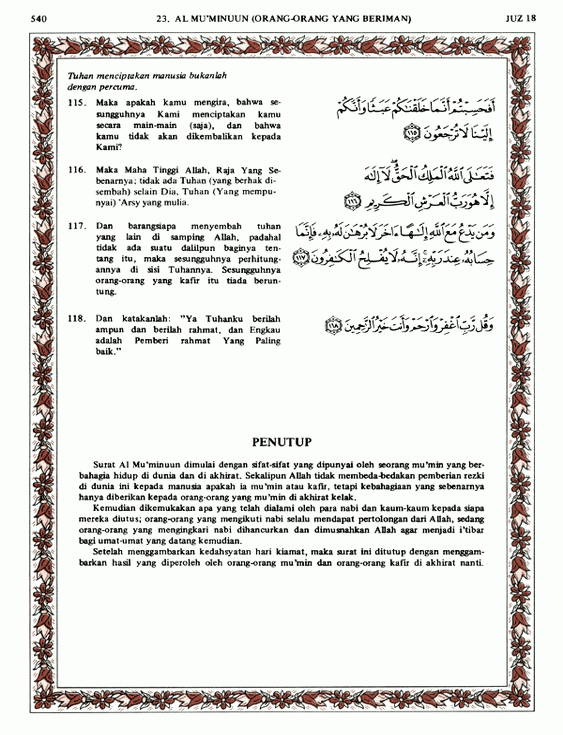 540
23. AL MU'MINUUN (ORANG-ORANG YANG BERIMAN)
JUZ 18
Tuhan menciptakan manusia bukanlah
dengan percuma.
115. Maka apakah kamu mengira, bahwa se-
sungguhnya Kami menciptakan kamu
secara main-main (saja), dan bahwa
kamu tidak akan dikembalikan kepada
Kami?
أَفَحَسِبْتُمْ أَنَّمَا خَلَقْنَاكُمْ عَبَثًا وَأَنَّكُمْ
إِلَيْنَا لَا تُرْجَعُونَ ﴿١١٥﴾
116. Maka Maha Tinggi Allah, Raja Yang Se-
benarnya; tidak ada Tuhan (yang berhak di-
sembah) selain Dia, Tuhan (Yang mempu-
nyai) 'Arsy yang mulia.
فَتَعَالَى اللَّهُ الْمَلِكُ الْحَقُّ ۖ لَا إِلَٰهَ
إِلَّا هُوَ رَبُّ الْعَرْشِ الْكَرِيمِ ﴿١١٦﴾
117. Dan barangsiapa menyembah tuhan
yang lain di samping Allah, padahal
tidak ada suatu dalilpun baginya ten-
tang itu, maka sesungguhnya perhitung-
annya di sisi Tuhannya. Sesungguhnya
orang-orang yang kafir itu tiada berun-
tung.
وَمَن يَدْعُ مَعَ اللَّهِ إِلَٰهًا آخَرَ لَا بُرْهَانَ لَهُ بِهِ فَإِنَّمَا
حِسَابُهُ عِندَ رَبِّهِ ۚ إِنَّهُ لَا يُفْلِحُ الْكَافِرُونَ ﴿١١٧﴾
118. Dan katakanlah: "Ya Tuhanku berilah
ampun dan berilah rahmat, dan Engkau
adalah Pemberi rahmat Yang Paling
baik."
وَقُل رَّبِّ اغْفِرْ وَارْحَمْ وَأَنتَ خَيْرُ الرَّاحِمِينَ ﴿١١٨﴾
PENUTUP
Surat Al Mu'minuun dimulai dengan sifat-sifat yang dipunyai oleh seorang mu'min yang ber-
bahagia hidup di dunia dan di akhirat. Sekalipun Allah tidak membeda-bedakan pemberian rezki
di dunia ini kepada manusia apakah ia mu'min atau kafir, tetapi kebahagiaan yang sebenarnya
hanya diberikan kepada orang-orang yang mu'min di akhirat kelak.
Kemudian dikemukakan apa yang telah dialami oleh para nabi dan kaum-kaum kepada siapa
mereka diutus; orang-orang yang mengikuti nabi selalu mendapat pertolongan dari Allah, sedang
orang-orang yang mengingkari nabi dihancurkan dan dimusnahkan Allah agar menjadi i'tibar
bagi umat-umat yang datang kemudian.
Setelah menggambarkan kedahsyatan hari kiamat, maka surat ini ditutup dengan menggam-
barkan hasil yang diperoleh oleh orang-orang mu'min dan orang-orang kafir di akhirat nanti.